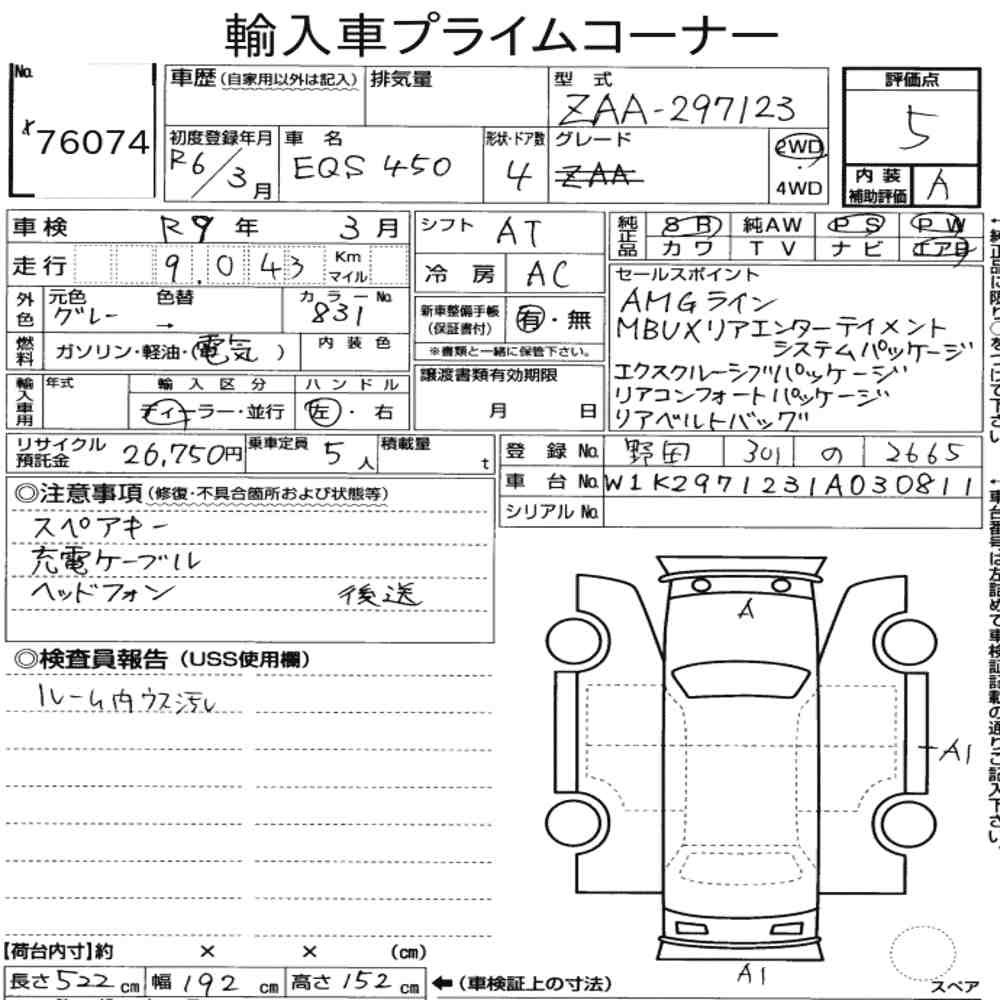 輸入車プライムコーナー
No. 76074
車歴 (自家用以外は記入)
排気量
型式 ZAA-297123
初度登録年月 R6/3月
車名 EQS 450
形状・ドア数 4
グレード ZAA
2WD
4WD
評価点 5
内装補助評価 A
車検 R9年 3月
走行 9,043 Km マイル
外色 元色 グレー 色替 → カラーNo. 831
燃料 ガソリン・軽油・(電気) 内装色
輸入車用 年式 輸入区分 ディーラー・並行 ハンドル 左・右
シフト AT
冷房 AC
新車整備手帳(保証書付) 有・無
※書類と一緒に保管下さい。
譲渡書類有効期限
月 日
純正品 SR 純AW PS PW
カワ TV ナビ エアB
セールスポイント
AMGライン
MBUXリアエンターテイメント
システムパッケージ
エクスクルーシブパッケージ
リアコンフォートパッケージ
リアベルトバッグ
リサイクル預託金 26,750円
乗車定員 5人
積載量 t
登録No. 野田 301 の 2665
車台No. W1K2971231A030811
シリアルNo.
◎注意事項 (修復・不具合箇所および状態等)
スペアキー
充電ケーブル
ヘッドフォン 後送
◎検査員報告 (USS使用欄)
ルーム内ウス汚レ
A
A1
A1
【荷台内寸】約 × × (cm)
長さ 522 cm 幅 192 cm 高さ 152 cm
←(車検証上の寸法)
スペア